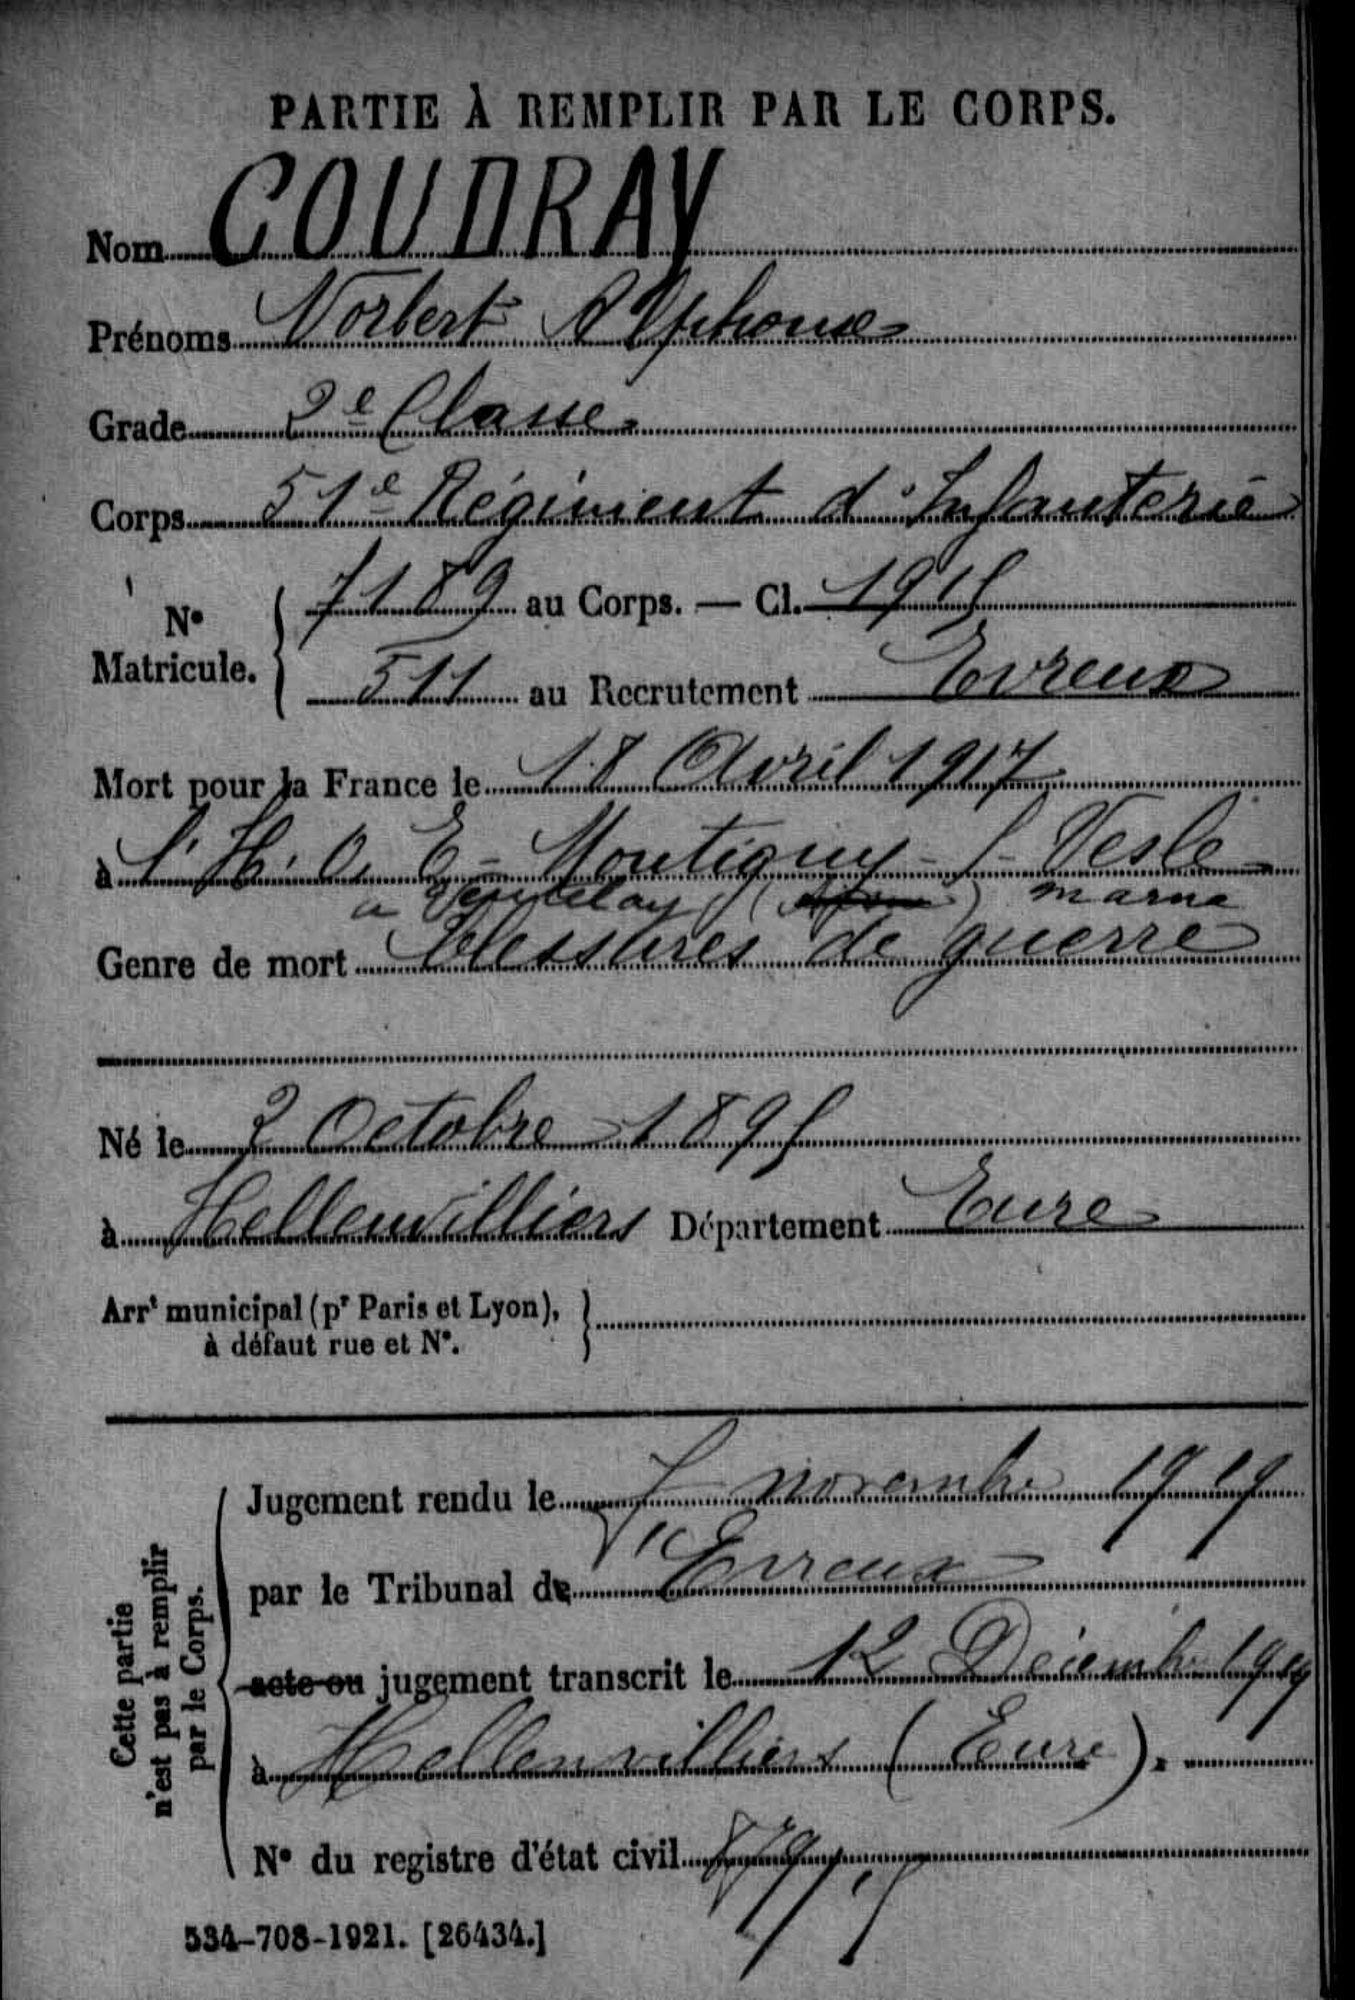 PARTIE À REMPLIR PAR LE CORPS.
Nom COUDRAY
Prénoms Norbert Alphonse
Grade 2e Classe
Corps 51e Régiment d'Infanterie
N° Matricule. { 7189 au Corps. — Cl. 1915
511 au Recrutement Evreux
Mort pour la France le 18 Avril 1917
à l'H. O. E - Montigny - s - Vesle
a Ventelay ( ) marne
Genre de mort blessures de guerre
Né le 2 Octobre 1895
à Hellenvilliers Département Eure
Arrt municipal (pr Paris et Lyon), à défaut rue et N°. }
Cette partie n'est pas à remplir par le Corps.
Jugement rendu le novembre 1919
par le Tribunal de Evreux
acte ou jugement transcrit le 12 Décembre 1919
à Hellenvilliers (Eure).
N° du registre d'état civil
534-708-1921. [26434.]